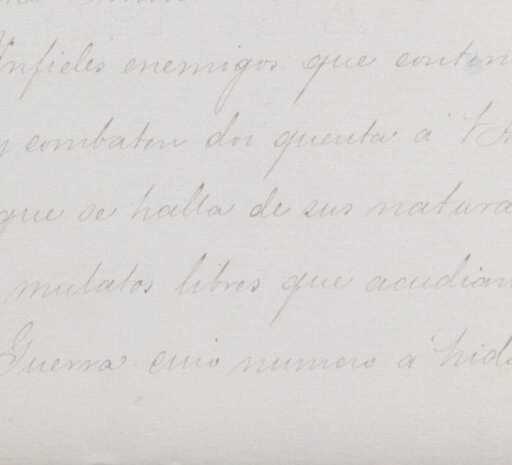 Infieles enemigos que contin
combaten doi quenta a
que se halla de sus natura
mulatos libres que acudian
Guerra cuio numero a hido